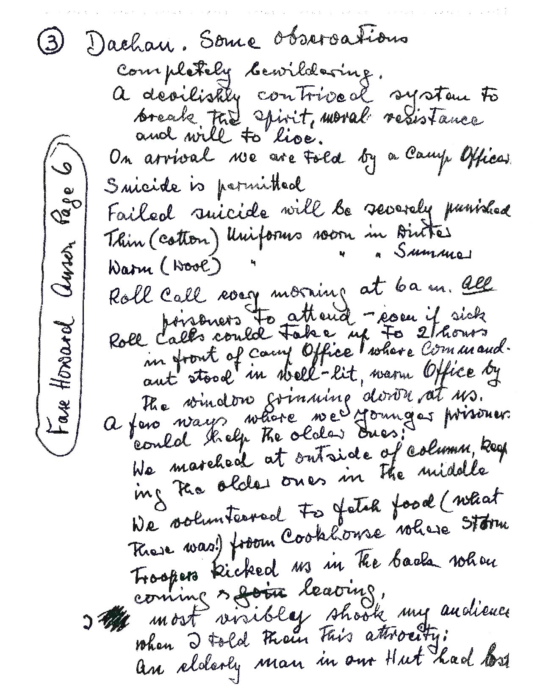 ③ Dachau. Some observations
completely bewildering.
A devilishly contrived system to
break the spirit, moral resistance
and will to live.
On arrival we are told by a Camp Officer
Suicide is permitted
Failed suicide will be severely punished
Thin (cotton) Uniforms worn in Winter
Warm (Wool) " " " Summer
Roll Call every morning at 6 a m. All
prisoners to attend - even if sick
Roll Calls could take up to 2 hours
in front of Camp Office where Command-
ant stood in well-lit, warm Office by
the window grinning down at us.
A few ways where we younger prisoners
could help the older ones:
We marched at outside of column, keep
ing the older ones in the middle
We volunteered to fetch food (what
there was!) from Cookhouse where Storm
Troopers kicked us in the back when
coming & leaving.
I most visibly shook my audience
when I told them this attrocity:
An elderly man in our Hut had lost
Howard Anson Page 6